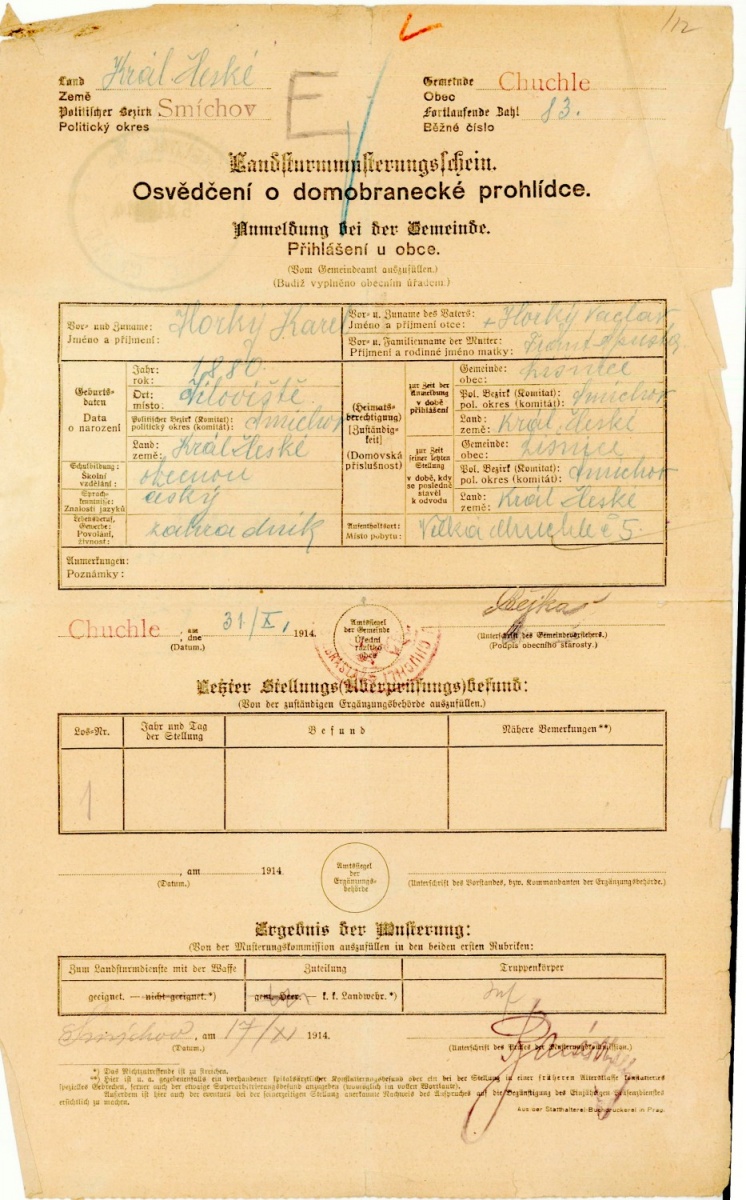 1/12
Land Král. České
Země
Gemeinde Chuchle
Obec
Politischer Bezirk Smíchov
Politický okres
Fortlaufende Zahl 83.
Běžné číslo
E
Landsturmmusterungsschein.
Osvědčení o domobranecké prohlídce.
Anmeldung bei der Gemeinde.
Přihlášení u obce.
(Vom Gemeindeamt auszufüllen.)
(Budiž vyplněno obecním úřadem.)
Vor- und Zuname: Horký Karel
Jméno a příjmení:
Vor- u. Zuname des Vaters: + Horký Václav
Jméno a příjmení otce:
Vor- u. Familienname der Mutter:
Příjmení a rodinné jméno matky:
Geburts-daten
Data o narození
Jahr: 1880
rok:
Ort: Jíloviště
místo:
Politischer Bezirk (Komitat): Smíchov
politický okres (komitát):
Land: Král. České
země:
Schulbildung: obecnou
Školní vzdělání:
Sprach-kenntnisse: český
Znalosti jazyků
Lebensberuf, Gewerbe: zahradník
Povolání, živnost:
(Heimats-berechtigung)
[Zuständig-keit]
(Domovská příslušnost)
zur Zeit der Anmeldung
v době přihlášení
Gemeinde: Lisnice
obec:
Pol. Bezirk (Komitat): Smíchov
pol. okres (komitát):
Land: Král. České
země:
zur Zeit seiner letzten Stellung
v době, kdy se posledně stavěl k odvodu
Gemeinde: Lisnice
obec:
Pol. Bezirk (Komitat): Smíchov
pol. okres (komitát):
Land: Král. České
země:
Aufenthaltsort: Velká Chuchle č 5.
Místo pobytu:
Anmerkungen:
Poznámky:
Chuchle, am 31/X, 1914.
dne
(Datum.)
Amtssiegel der Gemeinde
Úřední razítko obce
(Unterschrift des Gemeindevorstehers.)
(Podpis obecního starosty.)
Letzter Stellungs(Überprüfungs)befund:
(Von der zuständigen Ergänzungsbehörde auszufüllen.)
Los-Nr.
Jahr und Tag der Stellung
Befund
Nähere Bemerkungen **)
1
, am 1914.
(Datum.)
Amtssiegel der Ergänzungs-behörde
(Unterschrift des Vorstandes, bzw. Kommandanten der Ergänzungsbehörde.)
Ergebnis der Musterung:
(Von der Musterungskommission auszufüllen in den beiden ersten Rubriken:
Zum Landsturmdienste mit der Waffe
Zuteilung
Truppenkörper
geeignet. — nicht geeignet.*)
gem. Heer. — k. k. Landwehr.*)
Inf
Smíchov, am 17/XI 1914.
(Datum.)
(Unterschrift des Präses der Musterungskommission.)
*) Das Nichtzutreffende ist zu streichen.
**) Hier ist u. a. gegebenenfalls ein vorhandener spitalsärztlicher Konstatierungsbefund oder ein bei der Stellung in einer früheren Altersklasse konstatiertes
spezielles Gebrechen, ferner auch der etwaige Superarbitrierungsbefund anzugeben (tunlichst im vollen Wortlaute).
Außerdem ist hier auch der eventuell bei der seinerzeitigen Stellung anerkannte Nachweis des Anspruches auf die Begünstigung des Einjährigen-Präsenzdienstes
ersichtlich zu machen.
Aus der Statthalterei-Buchdruckerei in Prag.